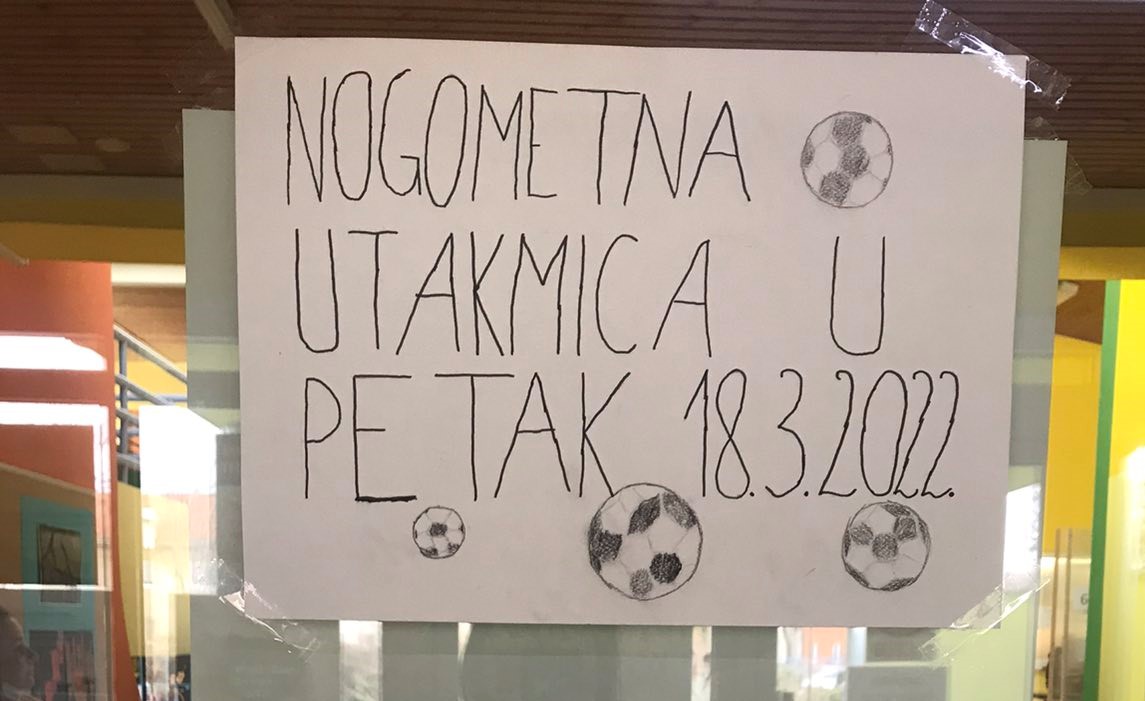 NOGOMETNA
UTAKMICA U
PETAK 18.3.2022.